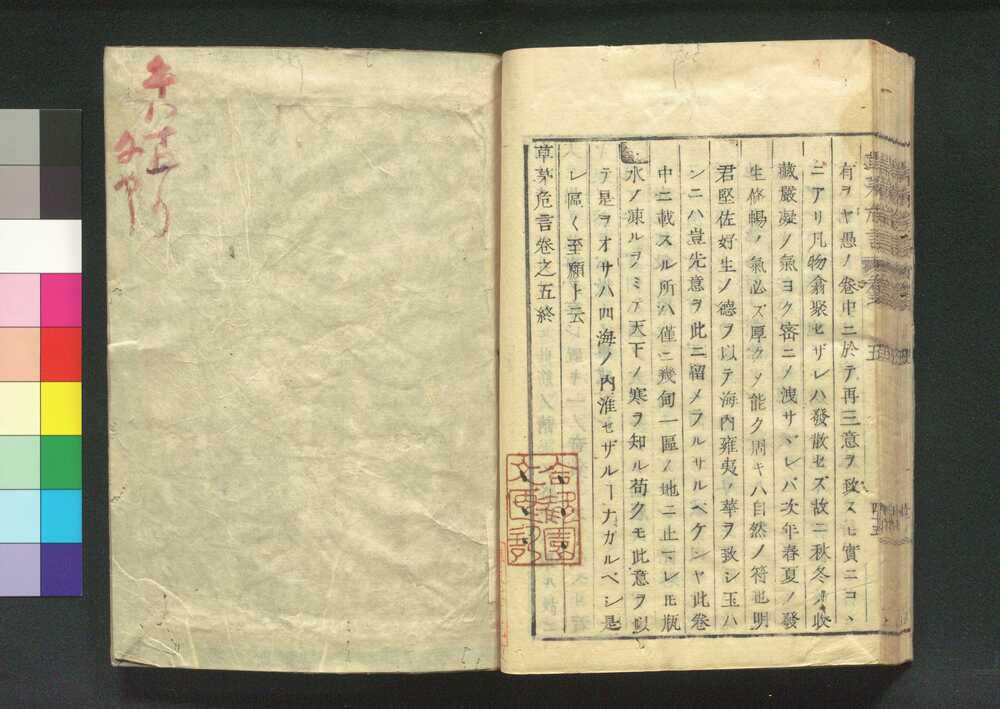 有ヲヤ愚ノ卷中ニ於テ再三意ヲ致スヿ實ニコヽ
ニアリ凡物翕聚セザレハ發散セズ故ニ秋冬ノ收
藏嚴凝ノ氣ヨク密ニメ洩サヾレバ次年春夏ノ發
生條暢ノ氣必ズ厚クメ能ク周キハ自然ノ符也明
君堅佐好生ノ德ヲ以テ海内雍夷ノ華ヲ致シ玉ハ
ンニハ豈先意ヲ此ニ留メラルサルベケンヤ此卷
中ニ載スル所ハ僅ニ幾甸一區ノ地ニ止マレ𪜈瓶
水ノ凍ルヲミテ天下ノ寒ヲ知ル苟クモ此意ヲ以
テ是ヲオサハ四海ノ内准セザルヿナカルベシ是
レ區〱至願ト云
草茅危言卷之五終
草茅危言 卷五
四十五